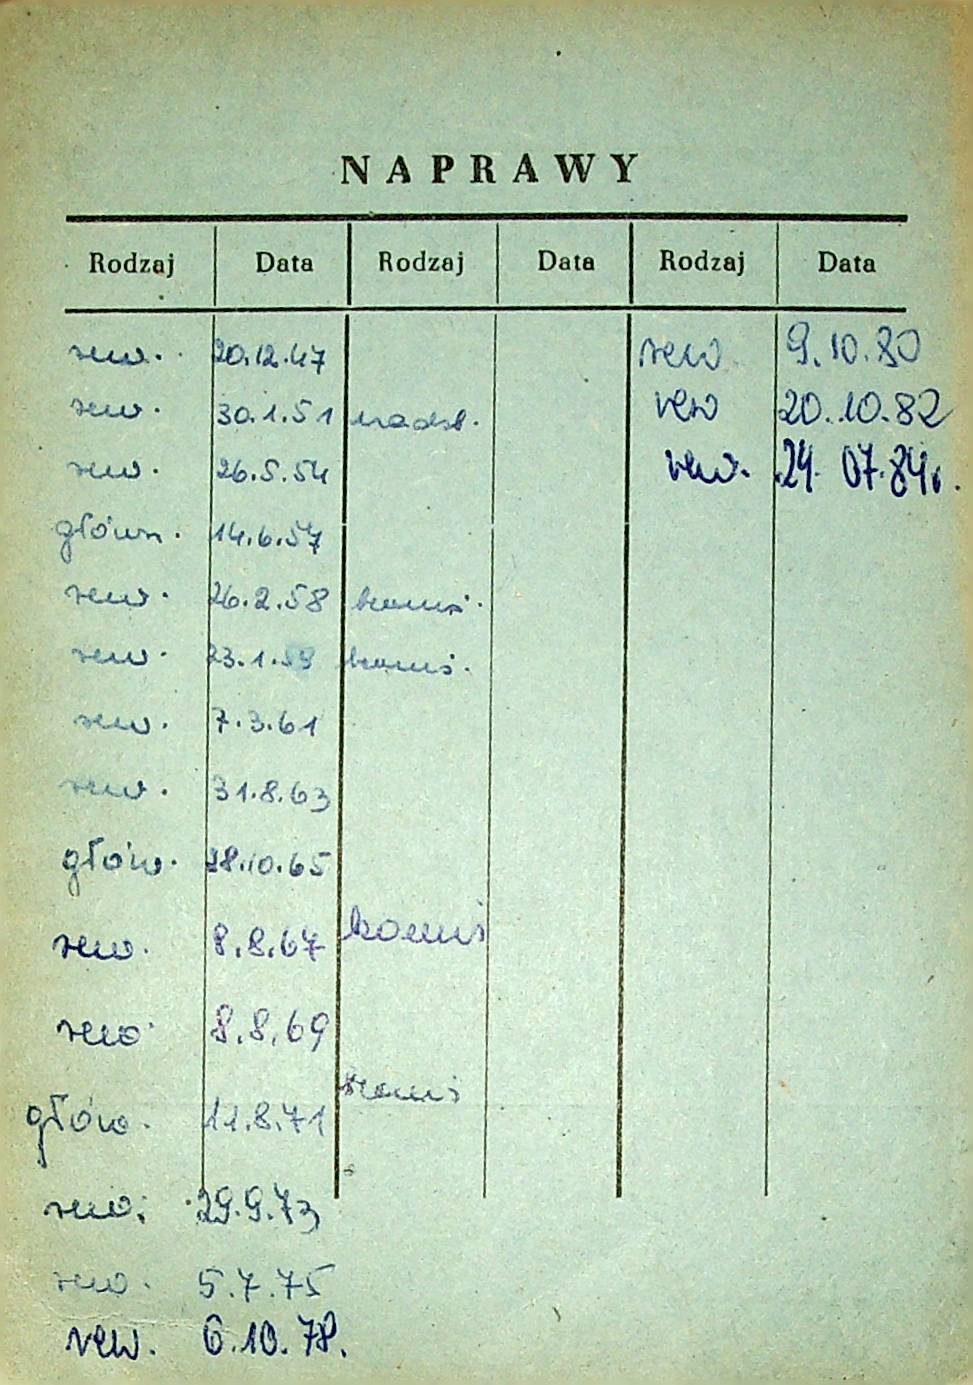 NAPRAWY
Rodzaj Data Rodzaj Data Rodzaj Data
rew. 20.12.47 rew 9.10.80
rew. 30.1.51 nadst. rew 20.10.82
rew. 26.5.54 rew. 24.07.84r.
główn. 14.6.57
rew. 26.2.58 komis.
rew. 23.1.59 komis.
rew. 7.3.61
rew. 31.8.63
głów. 28.10.65
rew. 8.8.67 komis
rew 8.8.69
głów. 11.8.71 komis
rew. 29.9.73
rew. 5.7.75
rew. 6.10.78.